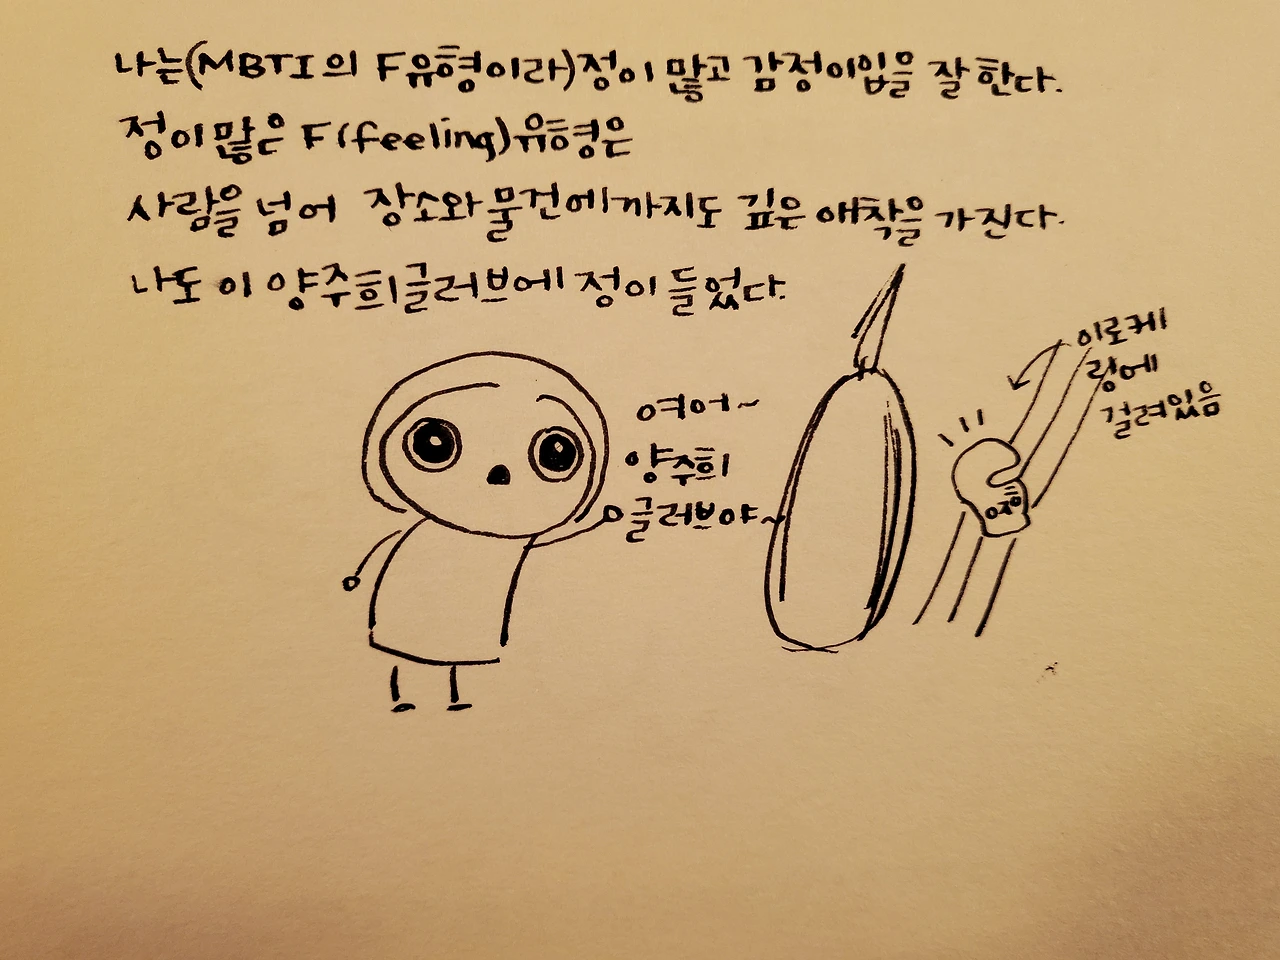 나는(MBTI의 F유형이라)정이 많고 감정이입을 잘 한다.
정이 많은 F(feeling)유형은
사람을 넘어 장소와 물건에까지도 깊은 애착을 가진다.
나도 이 양주희글러브에 정이 들었다.
여어~
양주희
글러브야~
이로케
링에
걸려있음